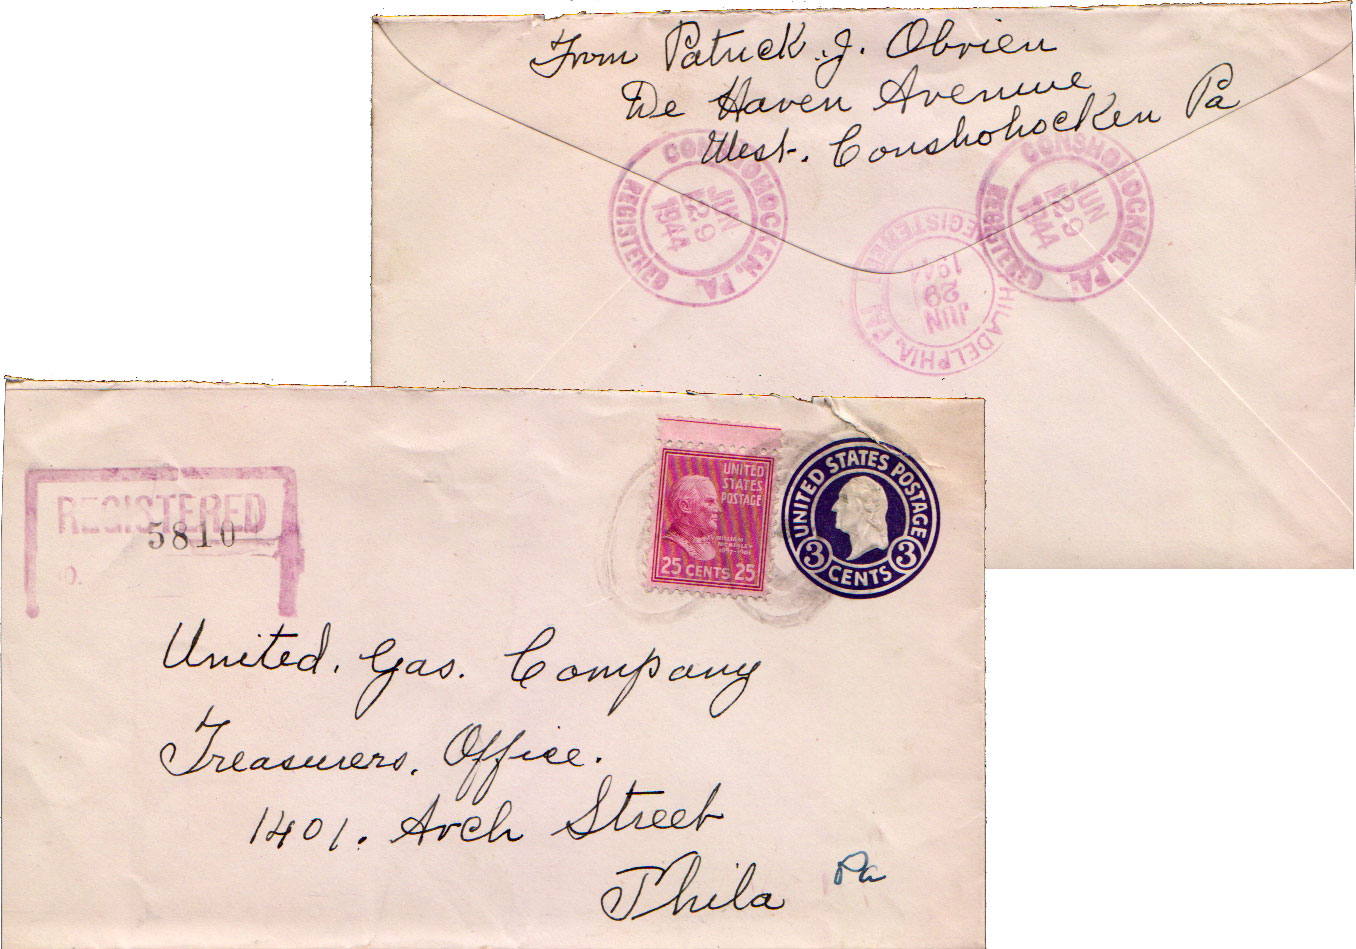 From Patrick J. Obrien
De Haven Avenue
West. Conshohocken Pa
CONSHOHOCKEN, PA.
REGISTERED
JUN
29
1944
CONSHOHOCKEN, PA.
REGISTERED
JUN
29
1944
PHILADELPHIA, PA.
REGISTERED
JUN
29
1944
REGISTERED
5810
UNITED
STATES
POSTAGE
WILLIAM
McKINLEY
1897-1901
25 CENTS 25
UNITED STATES POSTAGE
3 CENTS 3
United. Gas. Company
Treasurers. Office.
1401. Arch Street
Phila Pa